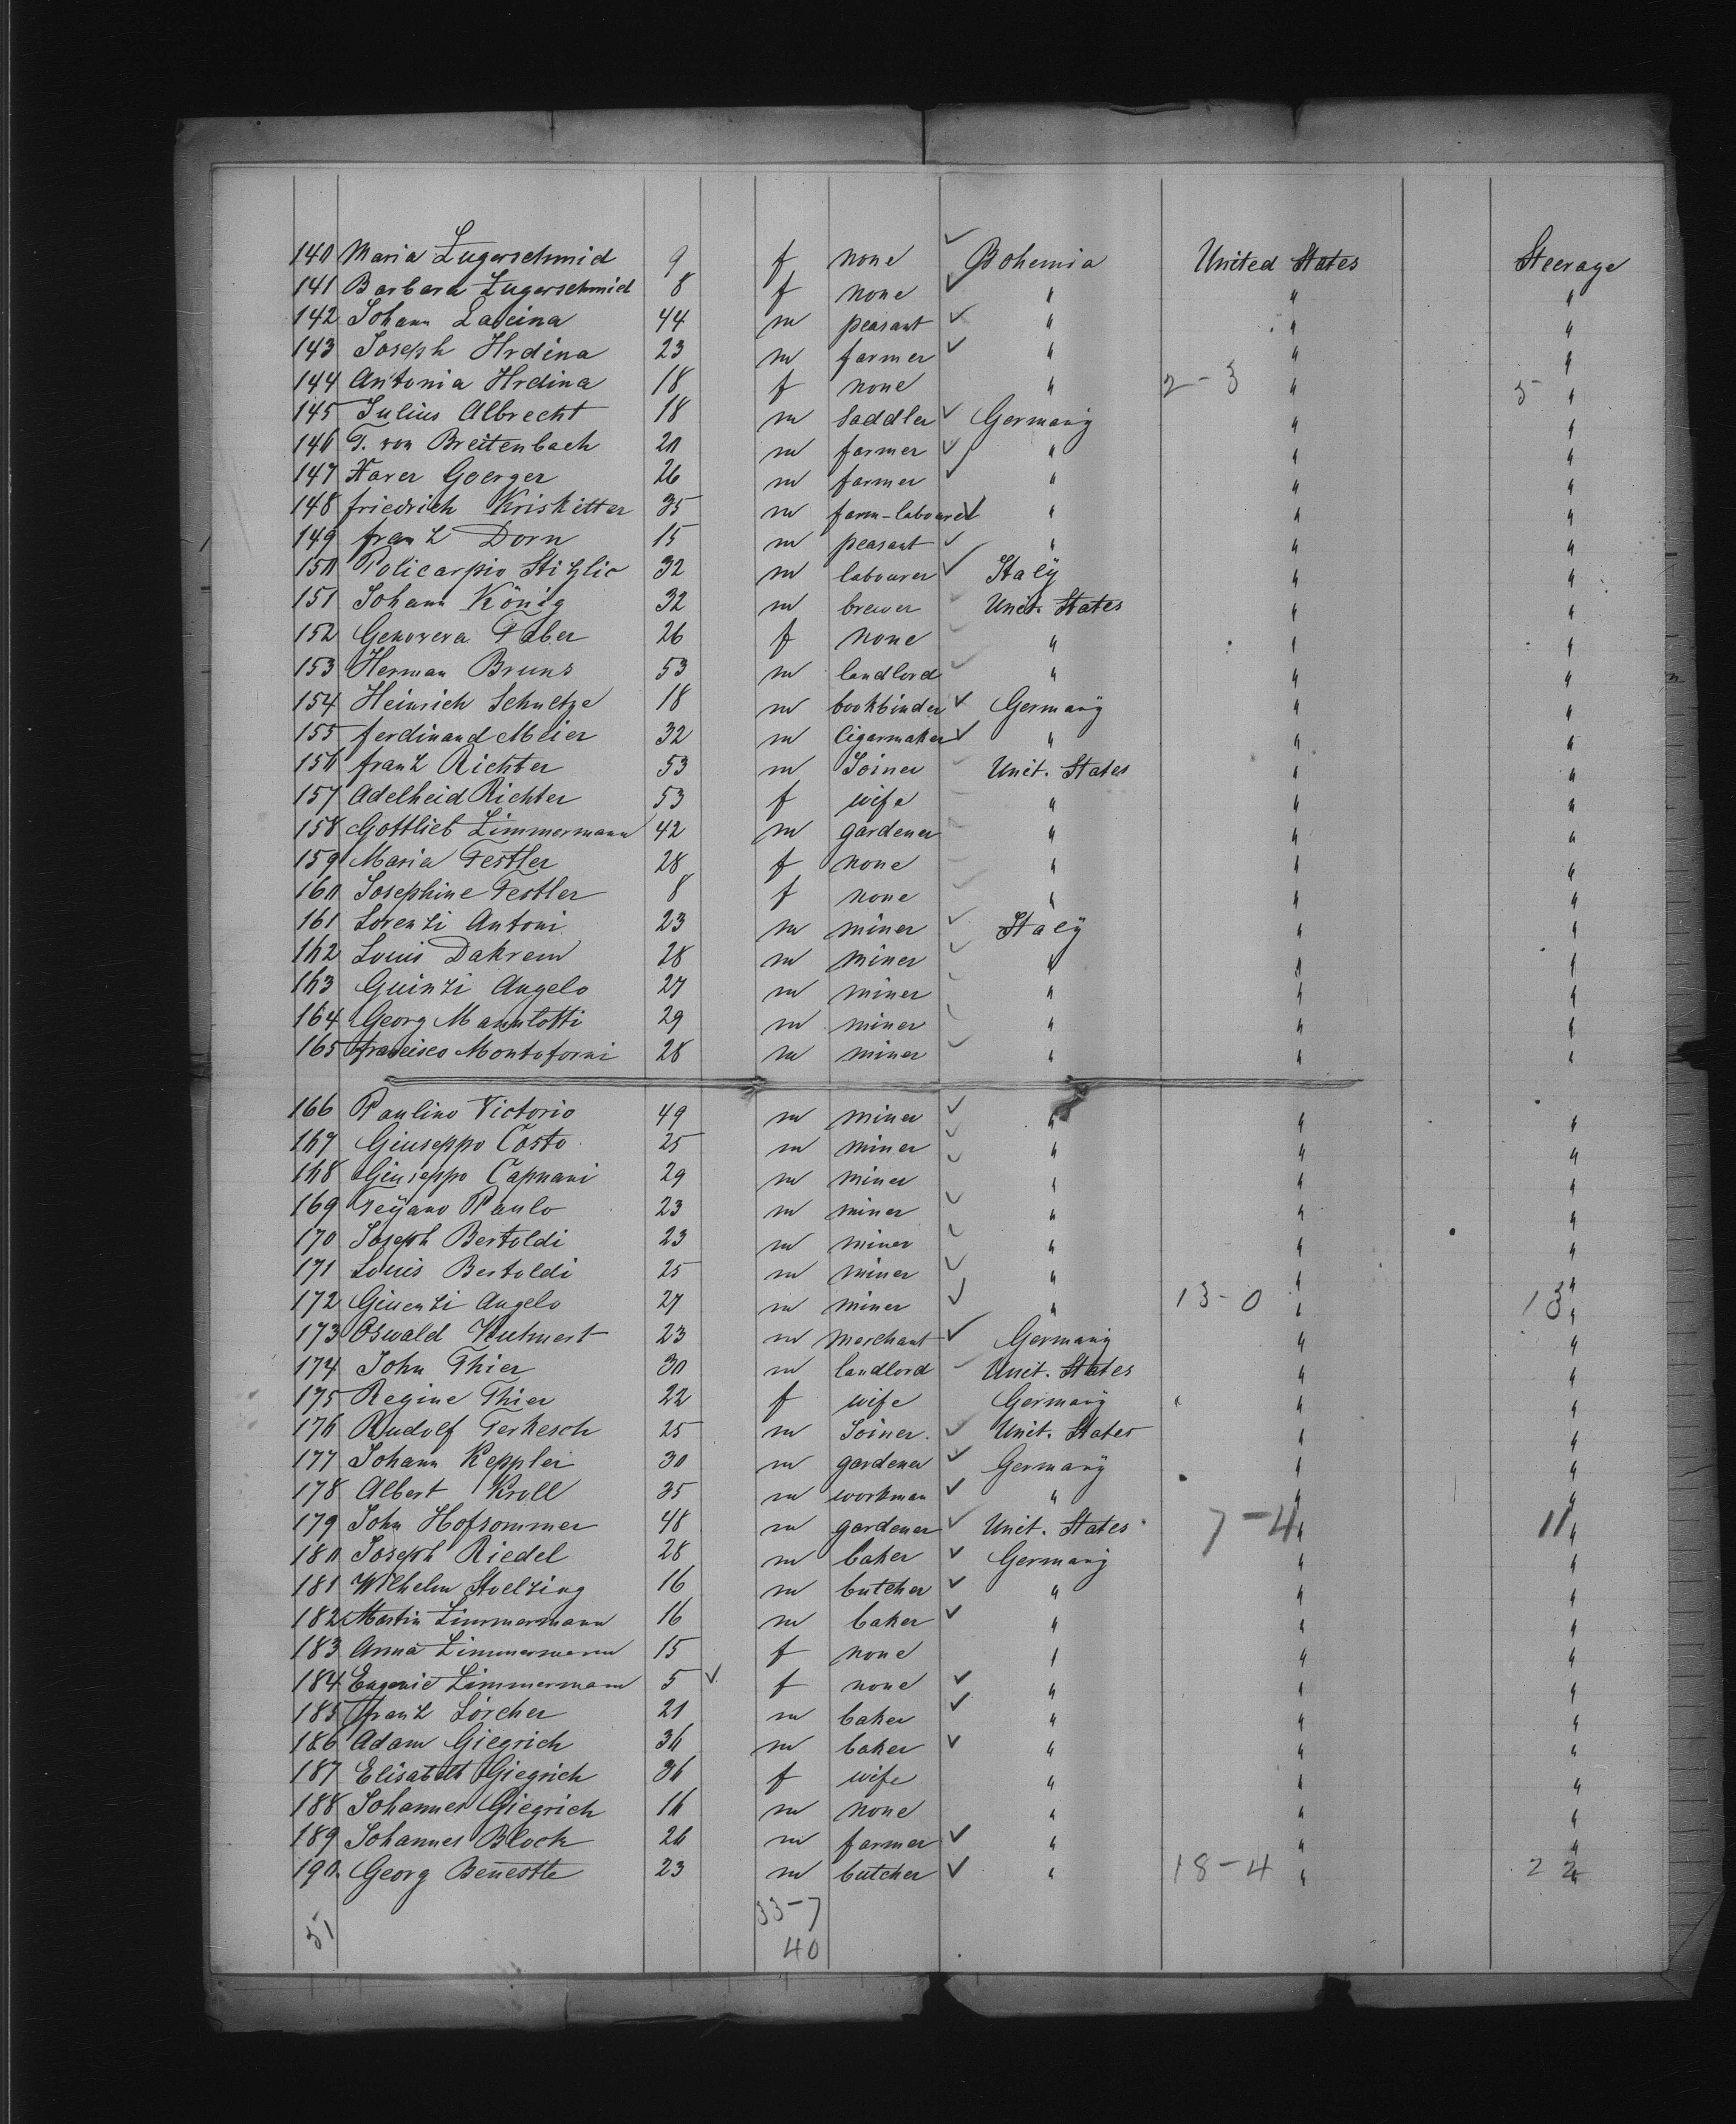 140 Maria Zugerschmid 9 f none ✓ Bohemia United States Steerage
141 Barbara Zugerschmid 8 f none ✓ " " "
142 Johann Ladeina 44 m peasant ✓ " " "
143 Joseph Hrdina 23 m farmer ✓ " " "
144 Antonia Hrdina 18 f none " 2-3 " 5 "
145 Julius Albrecht 18 m saddler ✓ Germany " "
146 T. von Breitenbach 20 m farmer ✓ " " "
147 Xaver Goerger 26 m farmer ✓ " " "
148 friedrich Kriskitter 35 m farm-labourer ✓ " " "
149 franz Dorn 15 m peasant ✓ " " "
150 Policarpio 32 m labourer ✓ Italy " "
151 Johann König 32 m brewer ✓ Unit. States " "
152 Genoveva Faber 26 f none ✓ " " "
153 Herman Bruns 53 m landlord ✓ " " "
154 Heinrich Schultze 18 m bookbinder ✓ Germany " "
155 ferdinand Meier 32 m Cigarmaker ✓ " " "
156 franz Richter 53 m Joiner ✓ Unit. States " "
157 Adelheid Richter 53 f wife " " "
158 Gottlieb Zimmermann 42 m gardener " " "
159 Maria Festler 28 f none " " "
160 Josephine Festler 8 f none ✓ " " "
161 Lorenzi Antoni 23 m miner ✓ Italy " "
162 Louis Dakrem 28 m miner ✓ " " "
163 Guinzi Angelo 27 m miner ✓ " " "
164 Georg Manulotti 29 m miner ✓ " " "
165 francisco Montoforni 28 m miner ✓ " " "
166 Paulino Victorio 49 m miner ✓ " " "
167 Giuseppo Costo 25 m miner ✓ " " "
168 Giuseppo Capuani 29 m miner ✓ " " "
169 Paulo 23 m miner ✓ " " "
170 Joseph Bertoldi 23 m miner ✓ " " "
171 Louis Bertoldi 25 m miner ✓ " " "
172 Giuenzi Angelo 27 m miner ✓ " 13-0 " 13 "
173 Oswald Kuhnert 23 m merchant ✓ Germany " "
174 John Thier 30 m landlord ✓ Unit. States " "
175 Regine Thier 22 f wife Germany " "
176 Rudolf Ferkesch 25 m Joiner. ✓ Unit. States " "
177 Johann Keppler 30 m gardener ✓ Germany " "
178 Albert Kroll 35 m workman ✓ " " "
179 John Hofsommer 48 m gardener ✓ Unit. States 7-4 " 11 "
180 Joseph Riedel 28 m baker ✓ Germany " "
181 Wilhelm Stoelzing 16 m butcher ✓ " " "
182 Martin Zimmermann 16 m baker ✓ " " "
183 Anna Zimmermann 15 f none " " "
184 Eugenie Zimmermann 5 ✓ f none ✓ " " "
185 franz Lörcher 21 m baker ✓ " " "
186 Adam Giegrich 36 m baker ✓ " " "
187 Elisabeth Giegrich 36 f wife " " "
188 Johannes Giegrich 16 m none " " "
189 Johannes Block 26 m farmer ✓ " " "
190. Georg 23 m butcher ✓ " 18-4 " 22 "
51 33-7
40